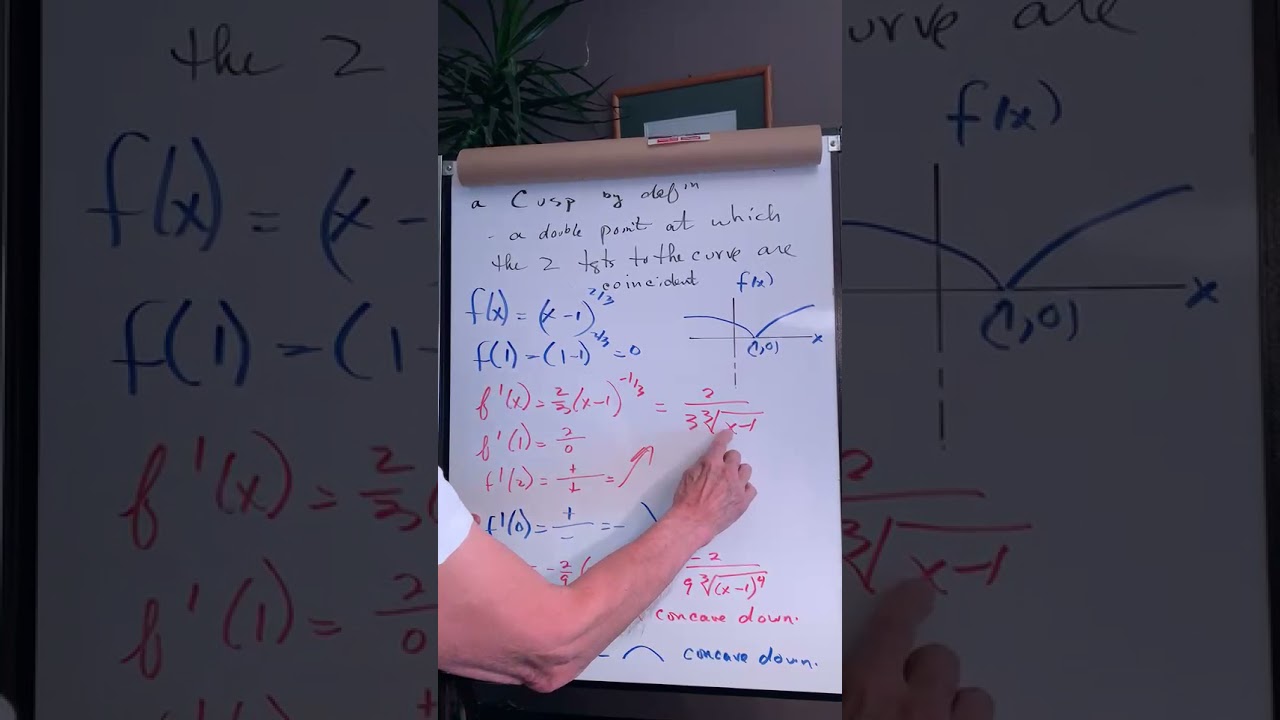 a Cusp by defⁿ
- a double point at which
the 2 tgts to the curve are
coincident
f(x)
f(x) = (x-1)^2/3
f(1) - (1-1)^2/3 = 0
x
(1,0)
f'(x) = 2/3 (x-1)^-1/3 = 2/(3∛(x-1))
f'(1) = 2/0
f'(2) = +/+ =
f'(0) = +/- = -
= -2/9 (
-2/(9∛(x-1)^4)
concave down.
- concave down.